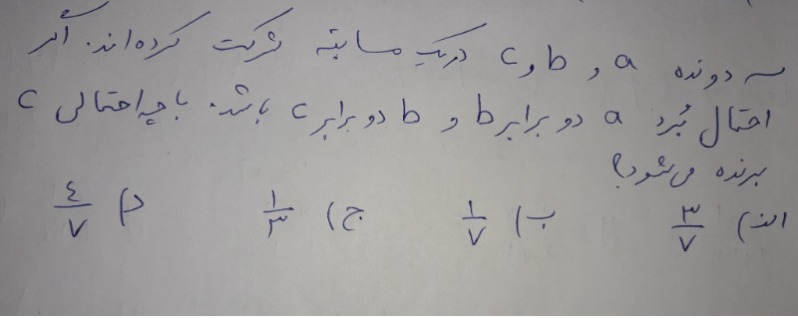 سه دونده a و b و c در یک مسابقه شرکت کرده‌اند. اگر
احتمال بُرد a دو برابر b و b دو برابر c باشد. با چه احتمالی c
برنده می‌شود؟
الف) ۳/۷ ب) ۱/۷ ج) ۱/۳ د) ٤/۷